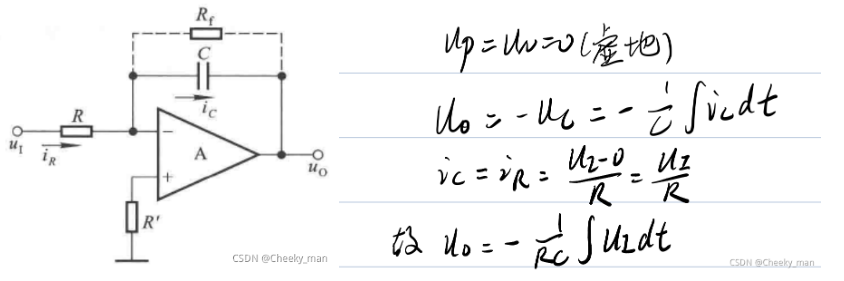 R_f
C
R
i_C
u_I
i_R
−
A
+
u_O
R'
CSDN @Cheeky_man
u_p = u_N = 0 (虚地)
u_o = -u_c = - \frac{1}{C} ∫ i_c dt
i_C = i_R = \frac{u_I - 0}{R} = \frac{u_I}{R}
故 u_o = - \frac{1}{RC} ∫ u_I dt
CSDN @Cheeky_man